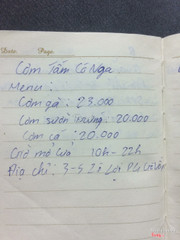 Date. Page.
Cơm Tấm Cô Nga
Menu:
Cơm gà : 23.000
Cơm sườn trứng : 20.000
Cơm cá : 20.000
Giờ mở cửa 10h - 22h
Địa chỉ : 3-5